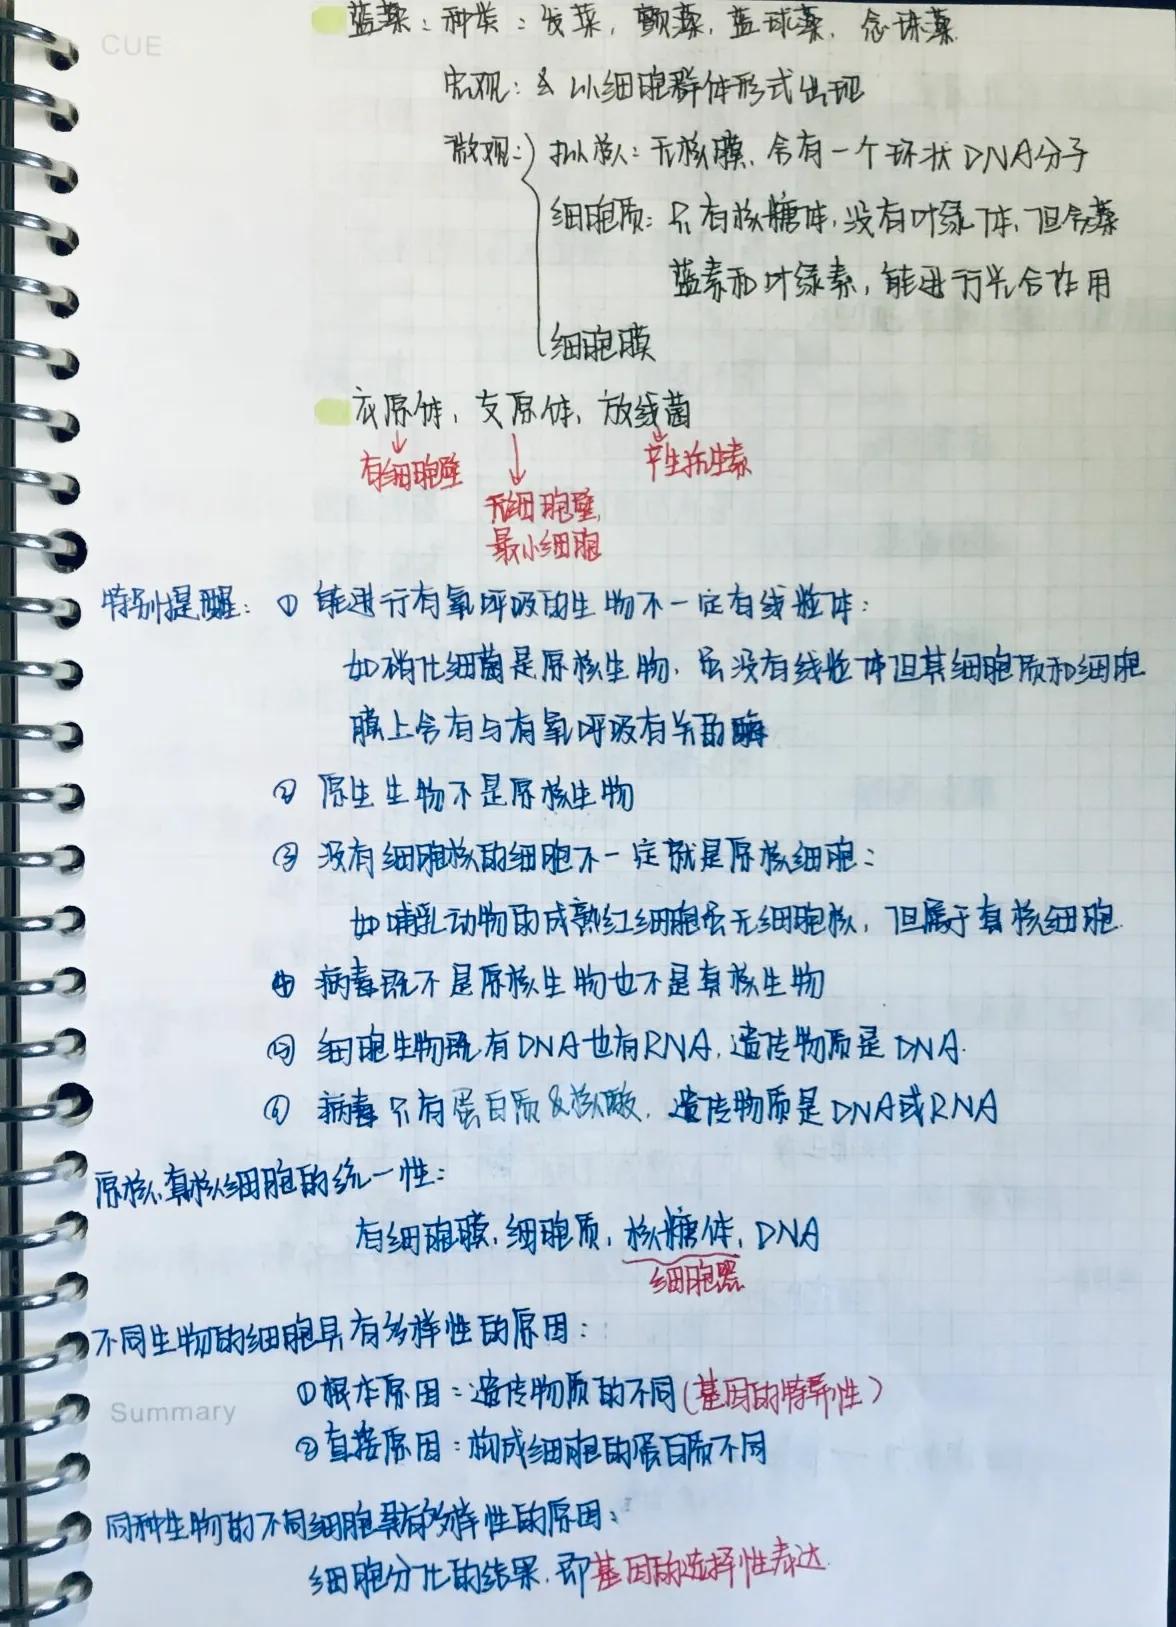 蓝藻：种类：发菜，颤藻，蓝球藻，念珠藻
CUE
宏观：以细胞群体形式出现
微观：拟核：无核膜，含有一个环状DNA分子
细胞质：只有核糖体，没有叶绿体，但含藻
蓝素和叶绿素，能进行光合作用
细胞膜
衣原体，支原体，放线菌
有细胞壁
产生抗生素
无细胞壁，
最小细胞
特别提醒：① 能进行有氧呼吸的生物不一定有线粒体：
如硝化细菌是原核生物，虽没有线粒体但其细胞质和细胞
膜上含有与有氧呼吸有关的酶
② 原生生物不是原核生物
③ 没有细胞核的细胞不一定就是原核细胞：
如哺乳动物的成熟红细胞虽无细胞核，但属于真核细胞.
④ 病毒既不是原核生物也不是真核生物
⑤ 细胞生物既有DNA也有RNA，遗传物质是DNA.
⑥ 病毒只有蛋白质&核酸，遗传物质是DNA或RNA
原核、真核细胞的统一性：
有细胞膜，细胞质，核糖体，DNA
细胞器
不同生物的细胞具有多样性的原因：
①根本原因：遗传物质的不同(基因的特异性)
Summary
②直接原因：构成细胞的蛋白质不同
同种生物的不同细胞具有多样性的原因：
细胞分化的结果，即基因的选择性表达.